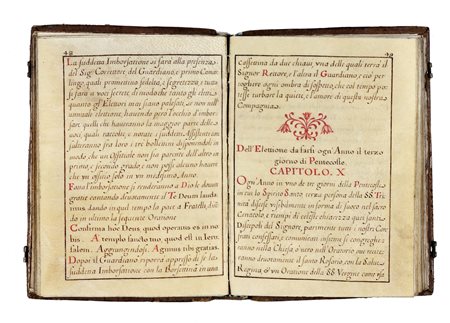 48
La suddetta Imborsatione si farà alla presenza
del Sig. Correttore del Guardiano, e primo Consi-
gliere quali promettino fedeltà, e segretezza, e tutto
si farà a voci secrete, di modo che tanto gli eletti
quanto gl'Elettori mai siano palesati, se non nell'
annuali elettioni, havendo però l'occhio d'imbor-
sare quelli che havevanno la maggior parte delle
voci, quali raccolte, e notate i sudditi Assistenti con-
sulteranno fra loro i tre bollettini disponendoli in
modo che un Offitiale non sia parente dell'altro in
primo, e secondo grado; e non possi alcuno haver
che un officio solo in un medesimo anno.
Fatta l'imborsatione si renderanno a Dio le dovute
gratie cantando divotamente il Te Deum lauda-
mus, dando in quel tempo la pace a Fratelli, dicen-
do in ultimo la seguente Oratione
Confirma hoc Deus, quod operatus es in no
bis. A templo sancto tuo, quod est in Ieru
salem. Aggiungendosi. Agimus tibi gratias.
Dopoi il Guardiano riporrà appresso di se la
suddetta Imborsatione con la Borsettina in una
49
cassettina da due chiavi, una delle quali terrà il
Signor Rettore, e l'altra il Guardiano, e ciò per
togliere ogni ombra di sospetto, che col tempo po-
tesse turbare la quiete, e l'amore di questa nostra
Compagnia.
Dell'Elettione da farsi ogn'Anno il terzo
giorno di Pentecoste.
CAPITOLO. X
Ogn'Anno in uno de tre giorni della Pentecoste,
in cui lo Spirito Santo terza persona della SS. Tri
nità discese visibilmente in forma di fuoco nel sacro
Cenacolo, e riempì di celeste chiarezza quei santi
Discepoli del Signore, parimente tutti i nostri Con-
frati confessati, e comunicati insieme si congreghe-
ranno nella Chiesa, o vero nell'Oratorio ove recite-
ranno divotamente il santo Rosario, con la Salve
Regina, & un'Oratione della SS. Vergine come essa